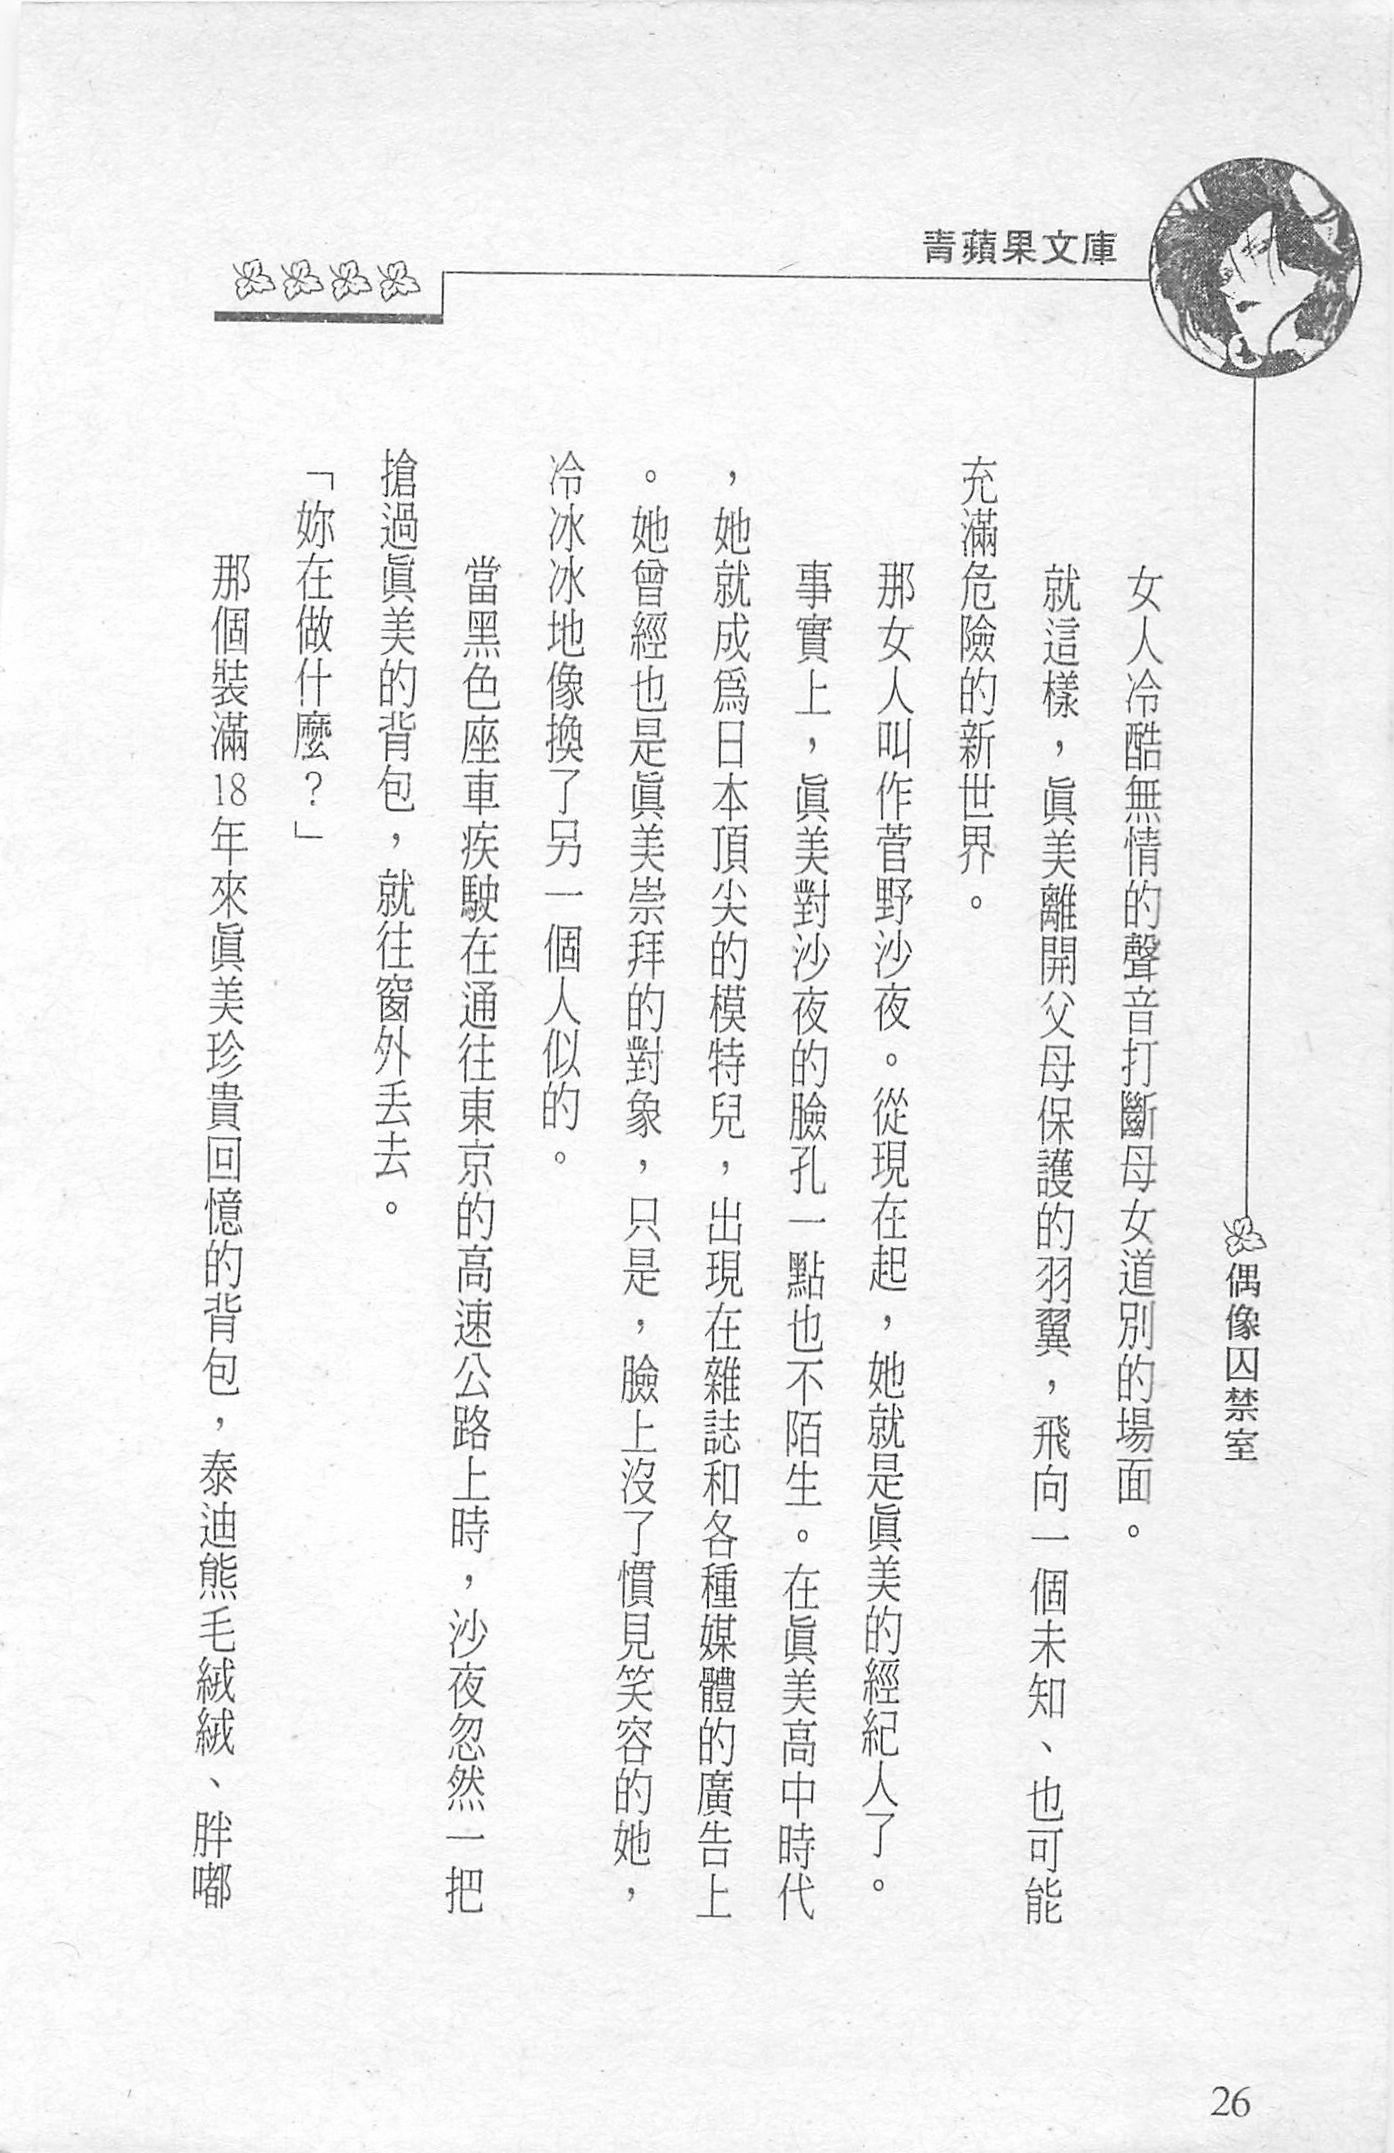 青蘋果文庫
偶像囚禁室
女人冷酷無情的聲音打斷母女道別的場面。
就這樣，眞美離開父母保護的羽翼，飛向一個未知、也可能
充滿危險的新世界。
那女人叫作菅野沙夜。從現在起，她就是眞美的經紀人了。
事實上，眞美對沙夜的臉孔一點也不陌生。在眞美高中時代
，她就成爲日本頂尖的模特兒，出現在雜誌和各種媒體的廣告上
。她曾經也是眞美崇拜的對象，只是，臉上沒了慣見笑容的她，
冷冰冰地像換了另一個人似的。
當黑色座車疾駛在通往東京的高速公路上時，沙夜忽然一把
搶過眞美的背包，就往窗外丢去。
「妳在做什麼？」
那個裝滿18年來眞美珍貴回憶的背包，泰迪熊毛絨絨、胖嘟
26